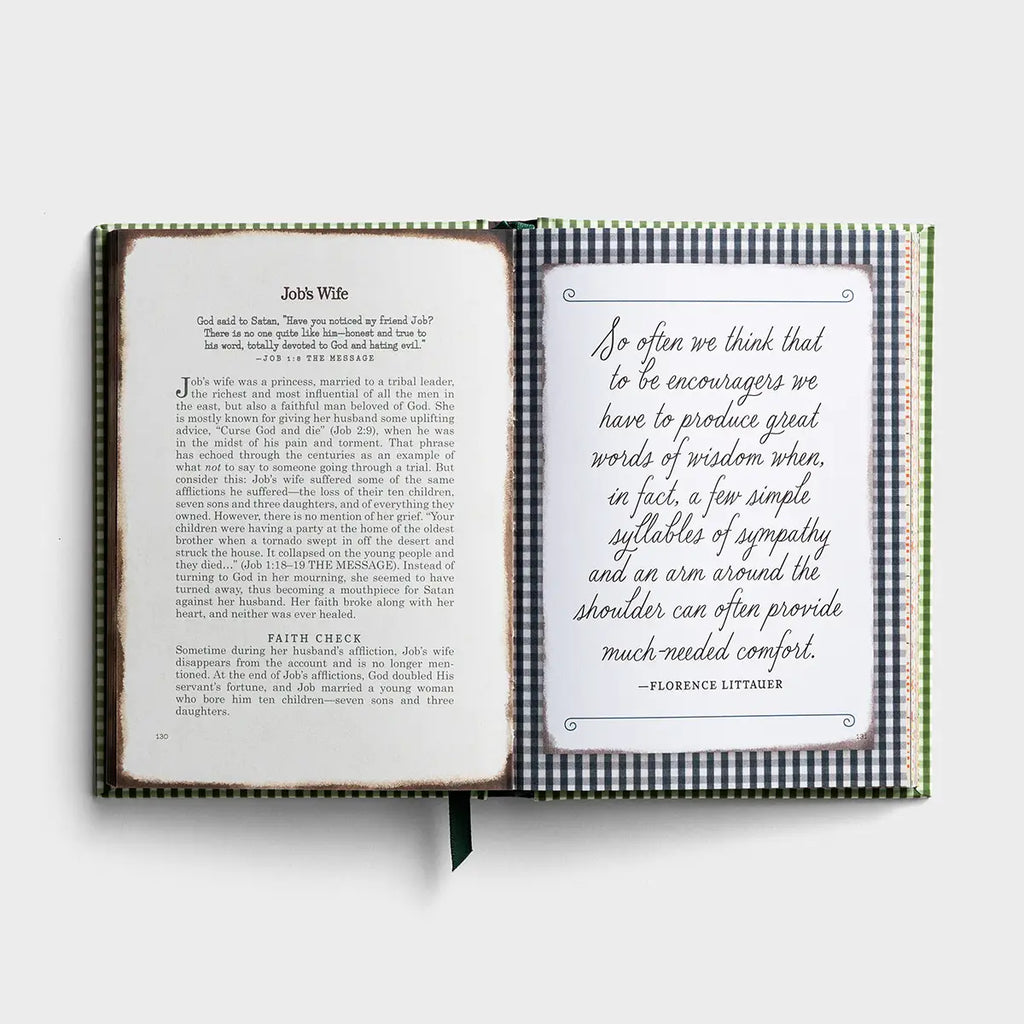 Job's Wife
God said to Satan, "Have you noticed my friend Job?
There is no one quite like him—honest and true to
his word, totally devoted to God and hating evil."
—JOB 1:8 THE MESSAGE
Job's wife was a princess, married to a tribal leader,
the richest and most influential of all the men in
the east, but also a faithful man beloved of God. She
is mostly known for giving her husband some uplifting
advice, "Curse God and die" (Job 2:9), when he was
in the midst of his pain and torment. That phrase
has echoed through the centuries as an example of
what not to say to someone going through a trial. But
consider this: Job's wife suffered some of the same
afflictions he suffered—the loss of their ten children,
seven sons and three daughters, and of everything they
owned. However, there is no mention of her grief. "Your
children were having a party at the home of the oldest
brother when a tornado swept in off the desert and
struck the house. It collapsed on the young people and
they died…" (Job 1:18–19 THE MESSAGE). Instead of
turning to God in her mourning, she seemed to have
turned away, thus becoming a mouthpiece for Satan
against her husband. Her faith broke along with her
heart, and neither was ever healed.
FAITH CHECK
Sometime during her husband's affliction, Job's wife
disappears from the account and is no longer men-
tioned. At the end of Job's afflictions, God doubled His
servant's fortune, and Job married a young woman
who bore him ten children—seven sons and three
daughters.
130
So often we think that
to be encouragers we
have to produce great
words of wisdom when,
in fact, a few simple
syllables of sympathy
and an arm around the
shoulder can often provide
much-needed comfort.
—FLORENCE LITTAUER
131